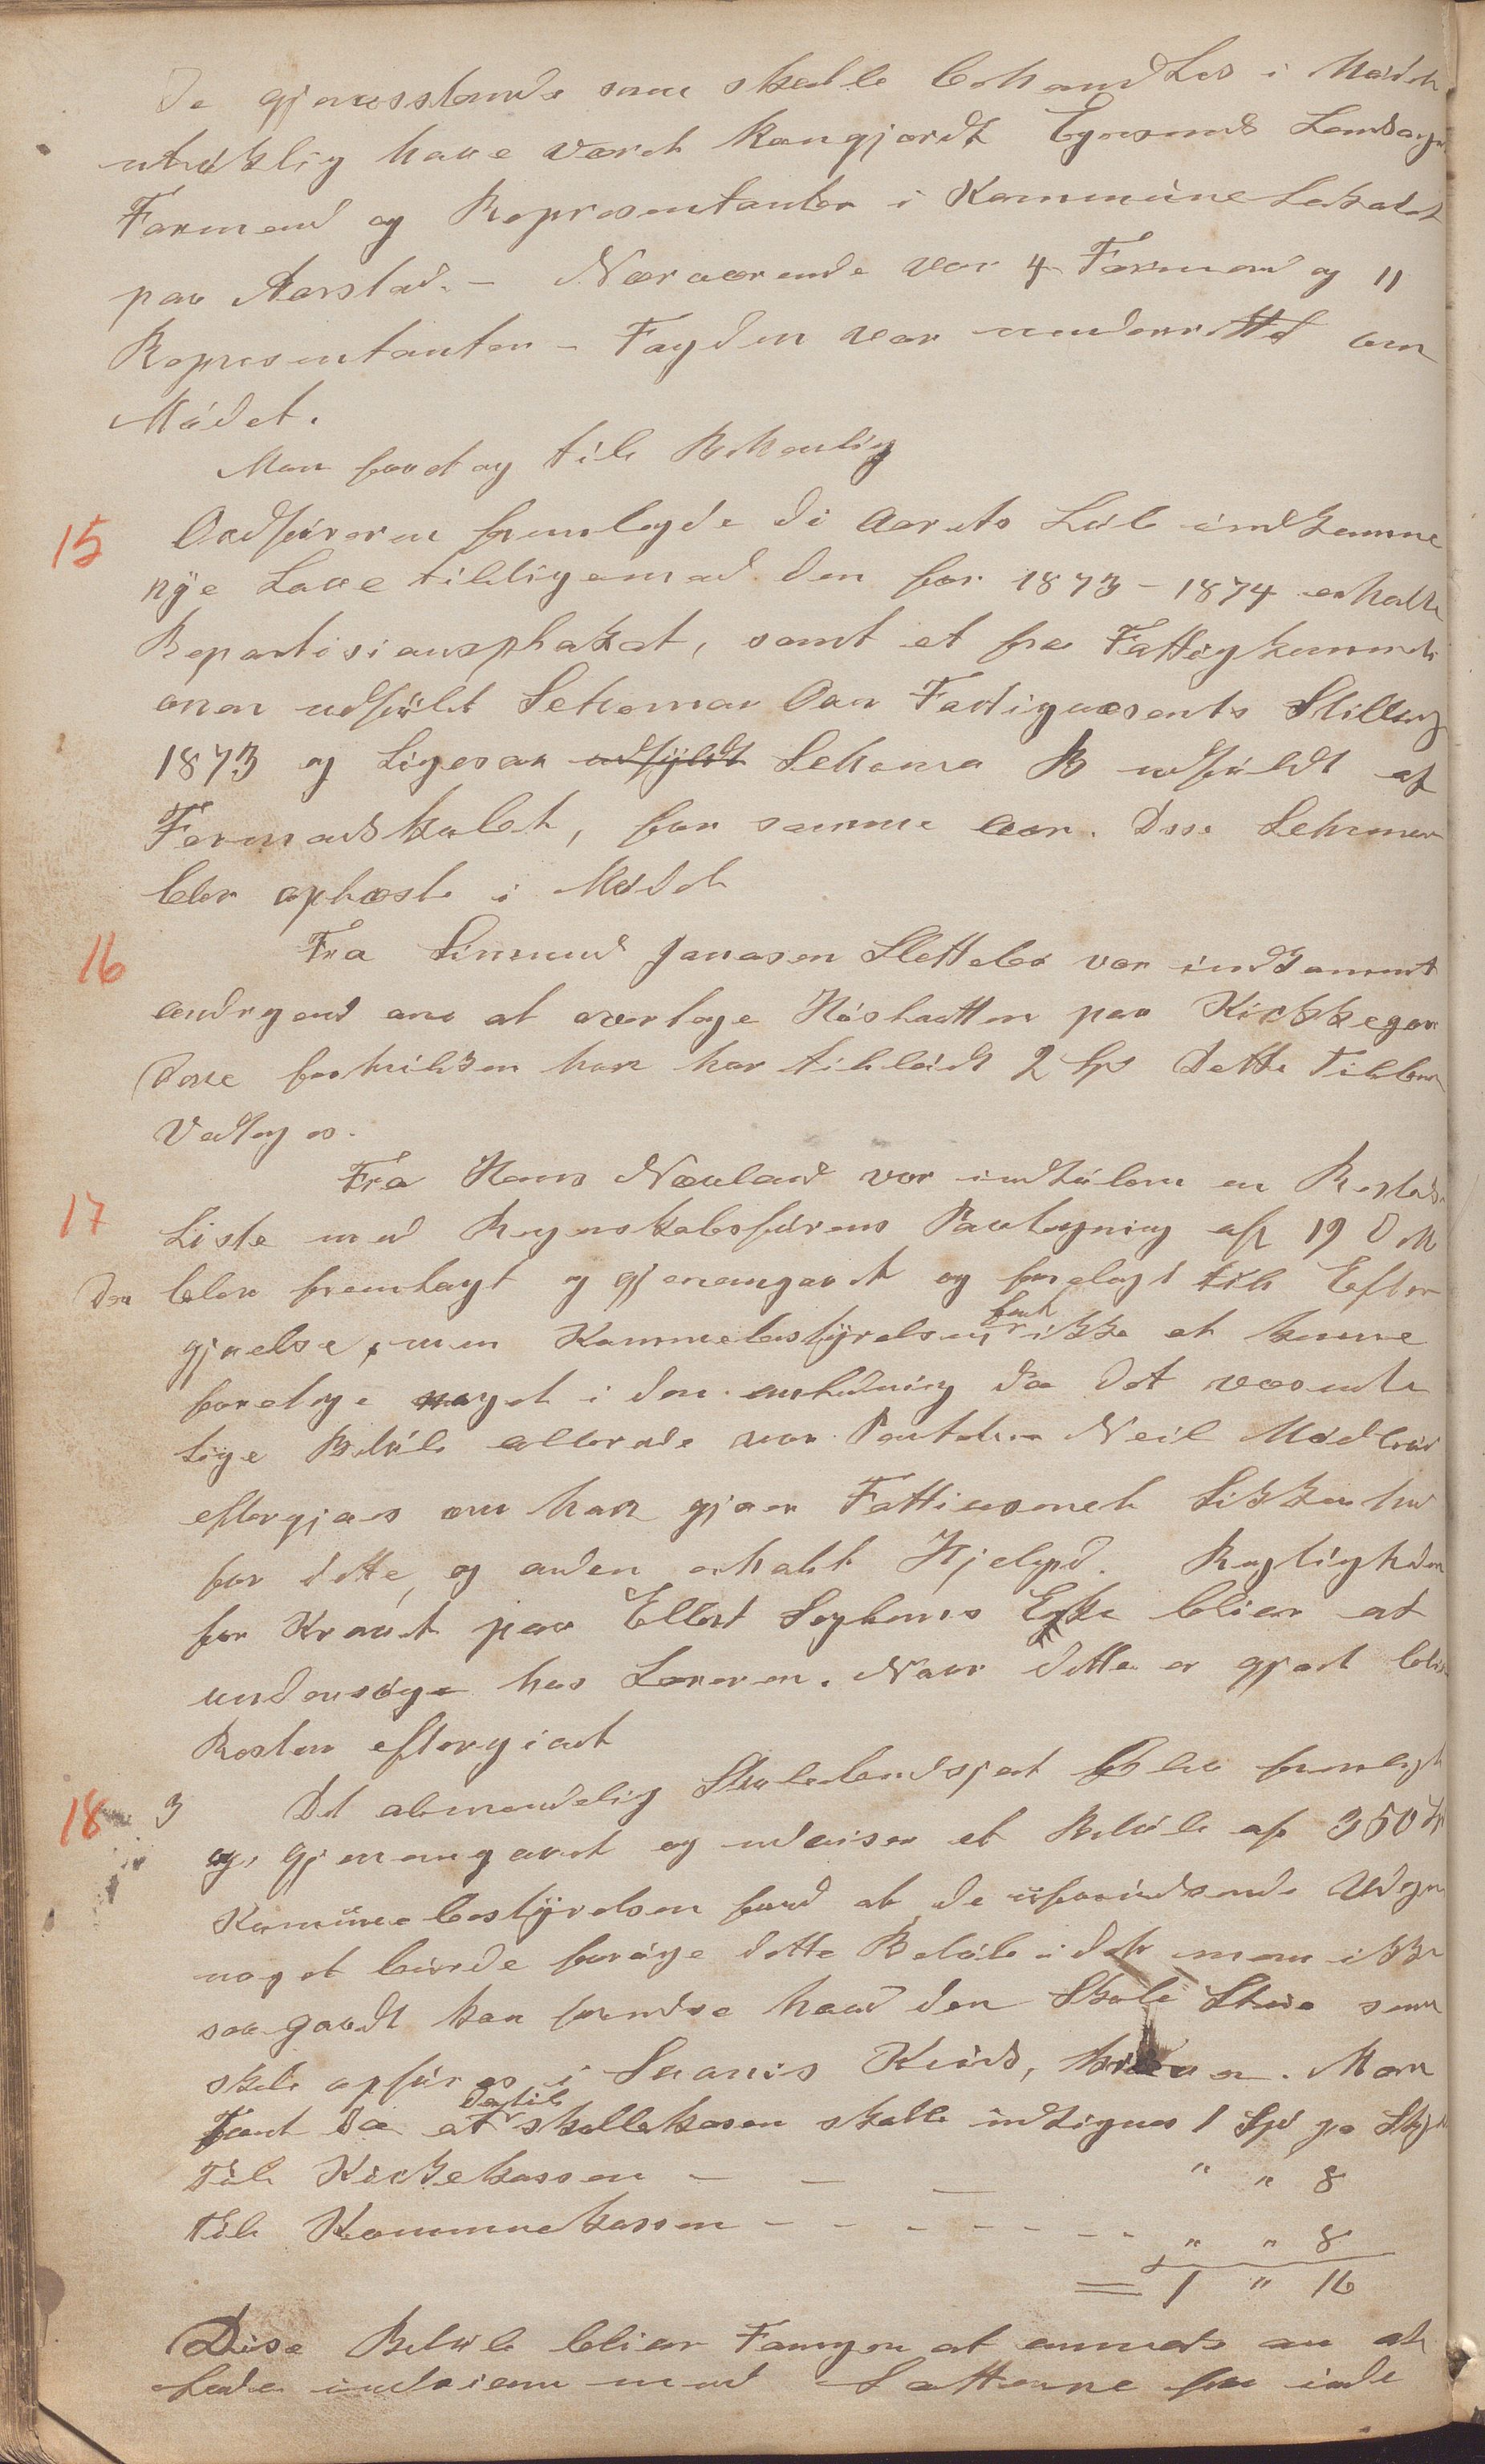 De gjenstande som skulle behandles i Mødet
utrøklig have været kongjordt Egersunds Landsogn
Formend og Representanter i Kommune Lokalet
paa Aarstad. - Nærværende var 4 Formend og 11
Representanter - Fogden var underrettet om
Mødet.
Man foretog til Behanlig
15 Ordføreren fremlagde di Aarets Løb indkomne
nye Love tilligemed den for 1873 - 1874 erholte
Repartisionsplakat, samt et fra Fattigkommis
onen udfylt Schema Om Fattigvæsents Stilling
1873 og Ligesaa udfyldt Schema B udfyldt af
Formadskabet, for samme aar. Disse Schemaer
blev oplæste i Mødet
16 Fra Simund Janasen Sletteboe var indkommet
andragend om at overtage Høslaatten paa Kirkkegar
dene forhvilken han har tilbødt 2 Sp Dette Tilbud
Vedtoges.
17 Fra Hans Nævland var indkommen en Restance
Liste med Regnskabsførens Paategning af 19 d M
den blev fremlagt og gjenemgaaet og forelagt til Efter
givelse, men Kommebestyrelsen fant ikke at kunne
foretage noget i den anledning da det væsente
lige Beløb allerede var Neil Mødbrød
eftergives om han gjver Fattivæsenet Sikkerhed
for dette og anden erhalt Hjelpd. Rigtigheden
for Kravet paa Ellert Seglems Enke bliver at
undersøge hos Læreren. Naar dette er gjort blir
Resten eftergivet
18 3 Det almendelig Skolebudsjet blev fremlagt
og gjenemgaaet og udviser et Beløb af 350
Kommunebestyrelsen fand at de uforudsende Udgn
noget burde forøge dette Beløb idet man ikke
saagaadt kan forudse hvad den Skole Stue som
skal opføres i Svanis Kreds, vil. Man
Fant da at der til skollekasen skulle indlignes 1 Spd pr Skyld
Til Kirkekassen - - - " " 8
Til Kommunekassen - - - - - - - " " 8
= 1 " 16
Disse Beløb bliver Famgen at anmode om at
lade indreven med Satterne for inde